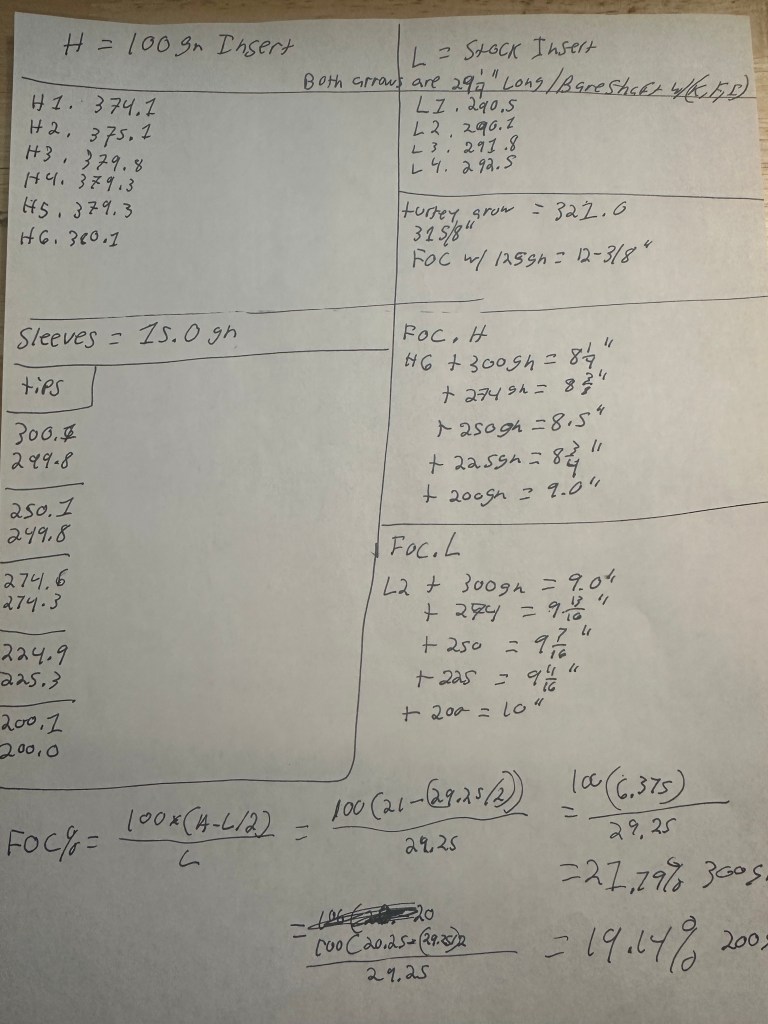 H = 100gn Insert
L = Stock Insert
Both arrows are 29 1/4" Long/Bareshaft w/(K,F,I)
H1. 374.1
H2. 375.1
H3. 379.8
H4. 379.3
H5. 379.3
H6. 380.1
L1. 290.5
L2. 290.1
L3. 291.8
L4. 292.5
turkey arow = 321.0
31 5/8"
FOC w/ 125gn = 12-3/8"
Sleeves = 15.0 gn
tips
300.1
299.8
250.1
249.8
274.6
274.3
224.9
225.3
200.1
200.0
FOC.H
H6 + 300gn = 8 1/4"
+ 274gn = 8 3/8"
+ 250gn = 8.5"
+ 225gn = 8 3/4"
+ 200gn = 9.0"
FOC.L
L2 + 300gn = 9.0"
+ 274 = 9 13/16"
+ 250 = 9 7/16"
+ 225 = 9 11/16"
+ 200 = 10"
FOC% = 100×(A-L/2)/L = 100(21-(29.25/2))/29.25 = 100(6.375)/29.25
= 21.79% 300g
= 20
100(20.25-(29.25)2/29.25 = 19.14% 200